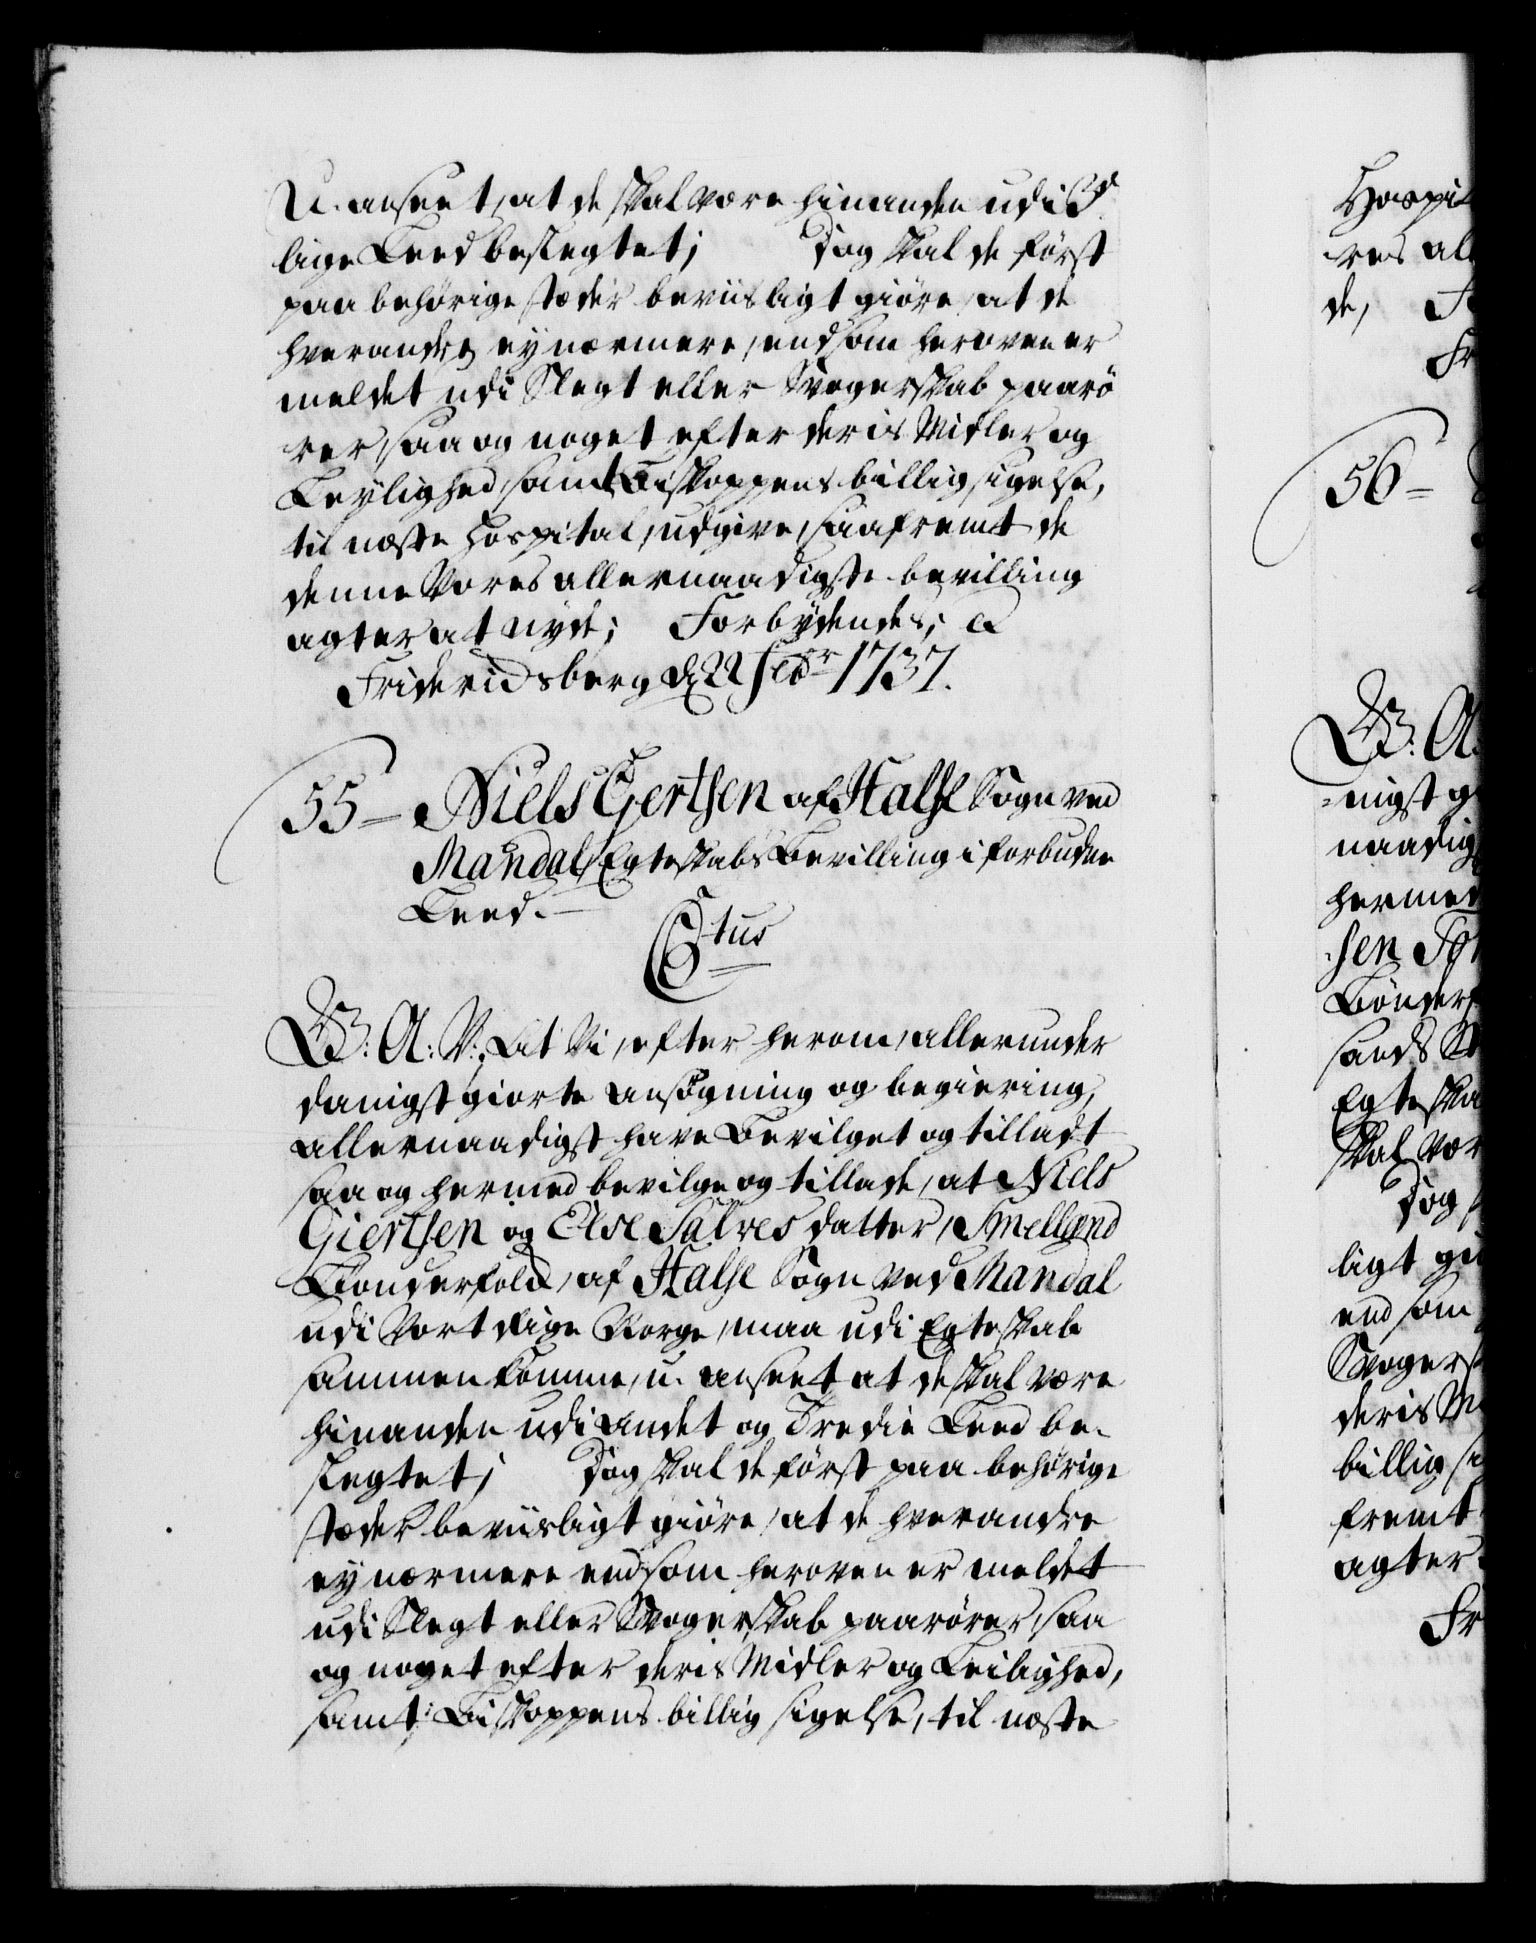 U. anseet, at de skal være hinanden udi 3de
lige Leed beslegtet; Dog skal de først
paa behørige stæder beviisligt giøre, at de
hverandre ey nærmere, end som heroven er
meldet udi Slegt eller Svogerskab paarø
rer, saa og noget efter deris Midler og
Leylighed, samt Biskoppens billig sigelse,
til næste Hospital, udgive, saafremt de
denne Vores allernaadigste bevilling
agter at nyde; Forbydendes; &
Friderichsberg d. 22 Febr 1737.
55 - Niels Gertsen af Halse Sogn ved
Mandal, Egteskabs Bevilling i forbudne
Leed.
C6tus
G: A: V: At Vi, efter herom, allerunder
danigst giorte ansøgning og begiering,
allernaadigst have Bevilget og tilladt
saa og hermed bevilge og tillade, at Niels
Giertsen og Else Salves datter, Smelland
Bonderfolck, af Halse Sogn ved Mandal
udi Vort Rige Norge, maa udi Egteskab
sammen komme, u. anseet at de skal være
hinanden udi andet og Tredie Leed be-
slegtet; Dog skal de først paa behørige
stæder beviisligt giøre, at de hverandre
ey nærmere end som heroven er meldet
udi Slegt eller Svogerskab paarører, saa
og noget efter deris Midler og Leilighed,
samt Biskoppens billig sigelse, til næste
Hospit
res al
de,
Fr
56 -
G: A:
-nigst g
naadig
hermed
sen
Bønder
sands
Egteska
skal vær
Dog
ligt gi
end som
Svogers
deris M
billig si
fremt
agter
Fr